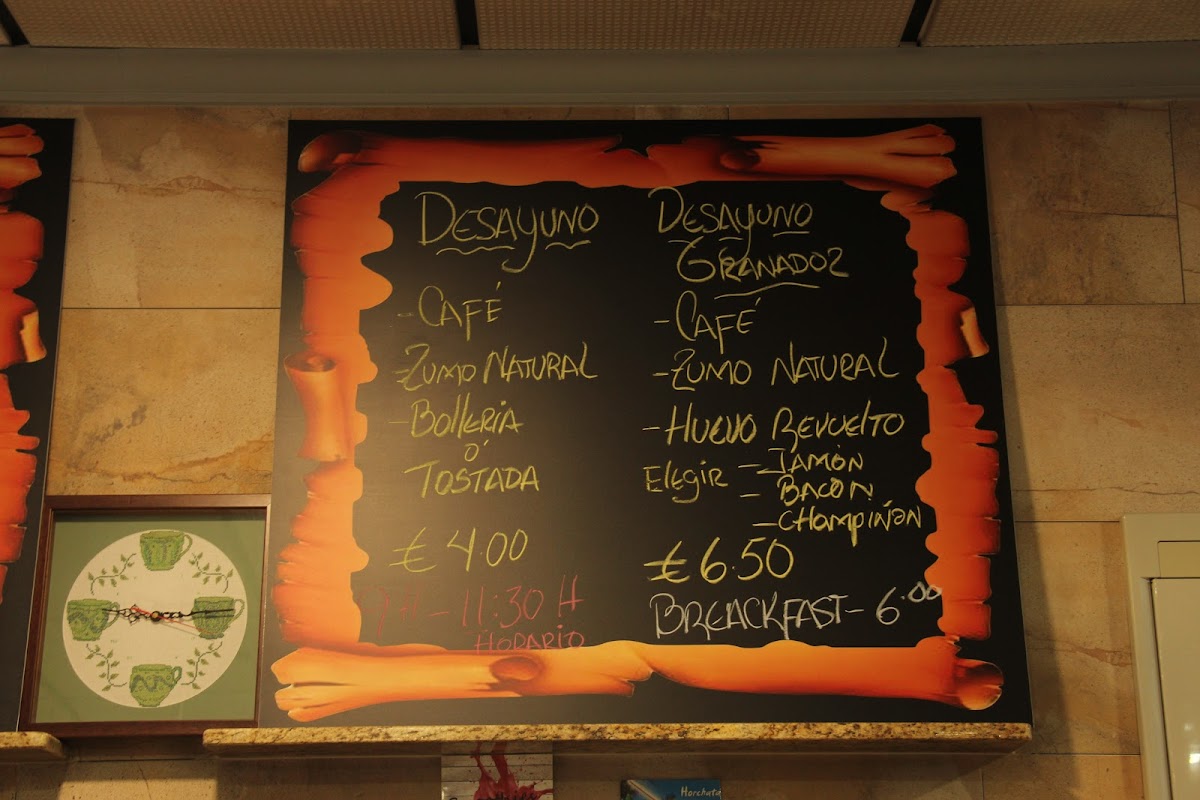 DESAYUNO
- CAFÉ
- ZUMO NATURAL
- BOLLERIA
Ó
TOSTADA
€ 4.00
11:30 H
HORARIO
DESAYUNO
GRANADOS
- CAFÉ
- ZUMO NATURAL
- HUEVO REVUELTO
ELEGIR - JAMÓN
- BACON
- CHAMPIÑON
€ 6.50
BREACKFAST - 6.00
Horchata